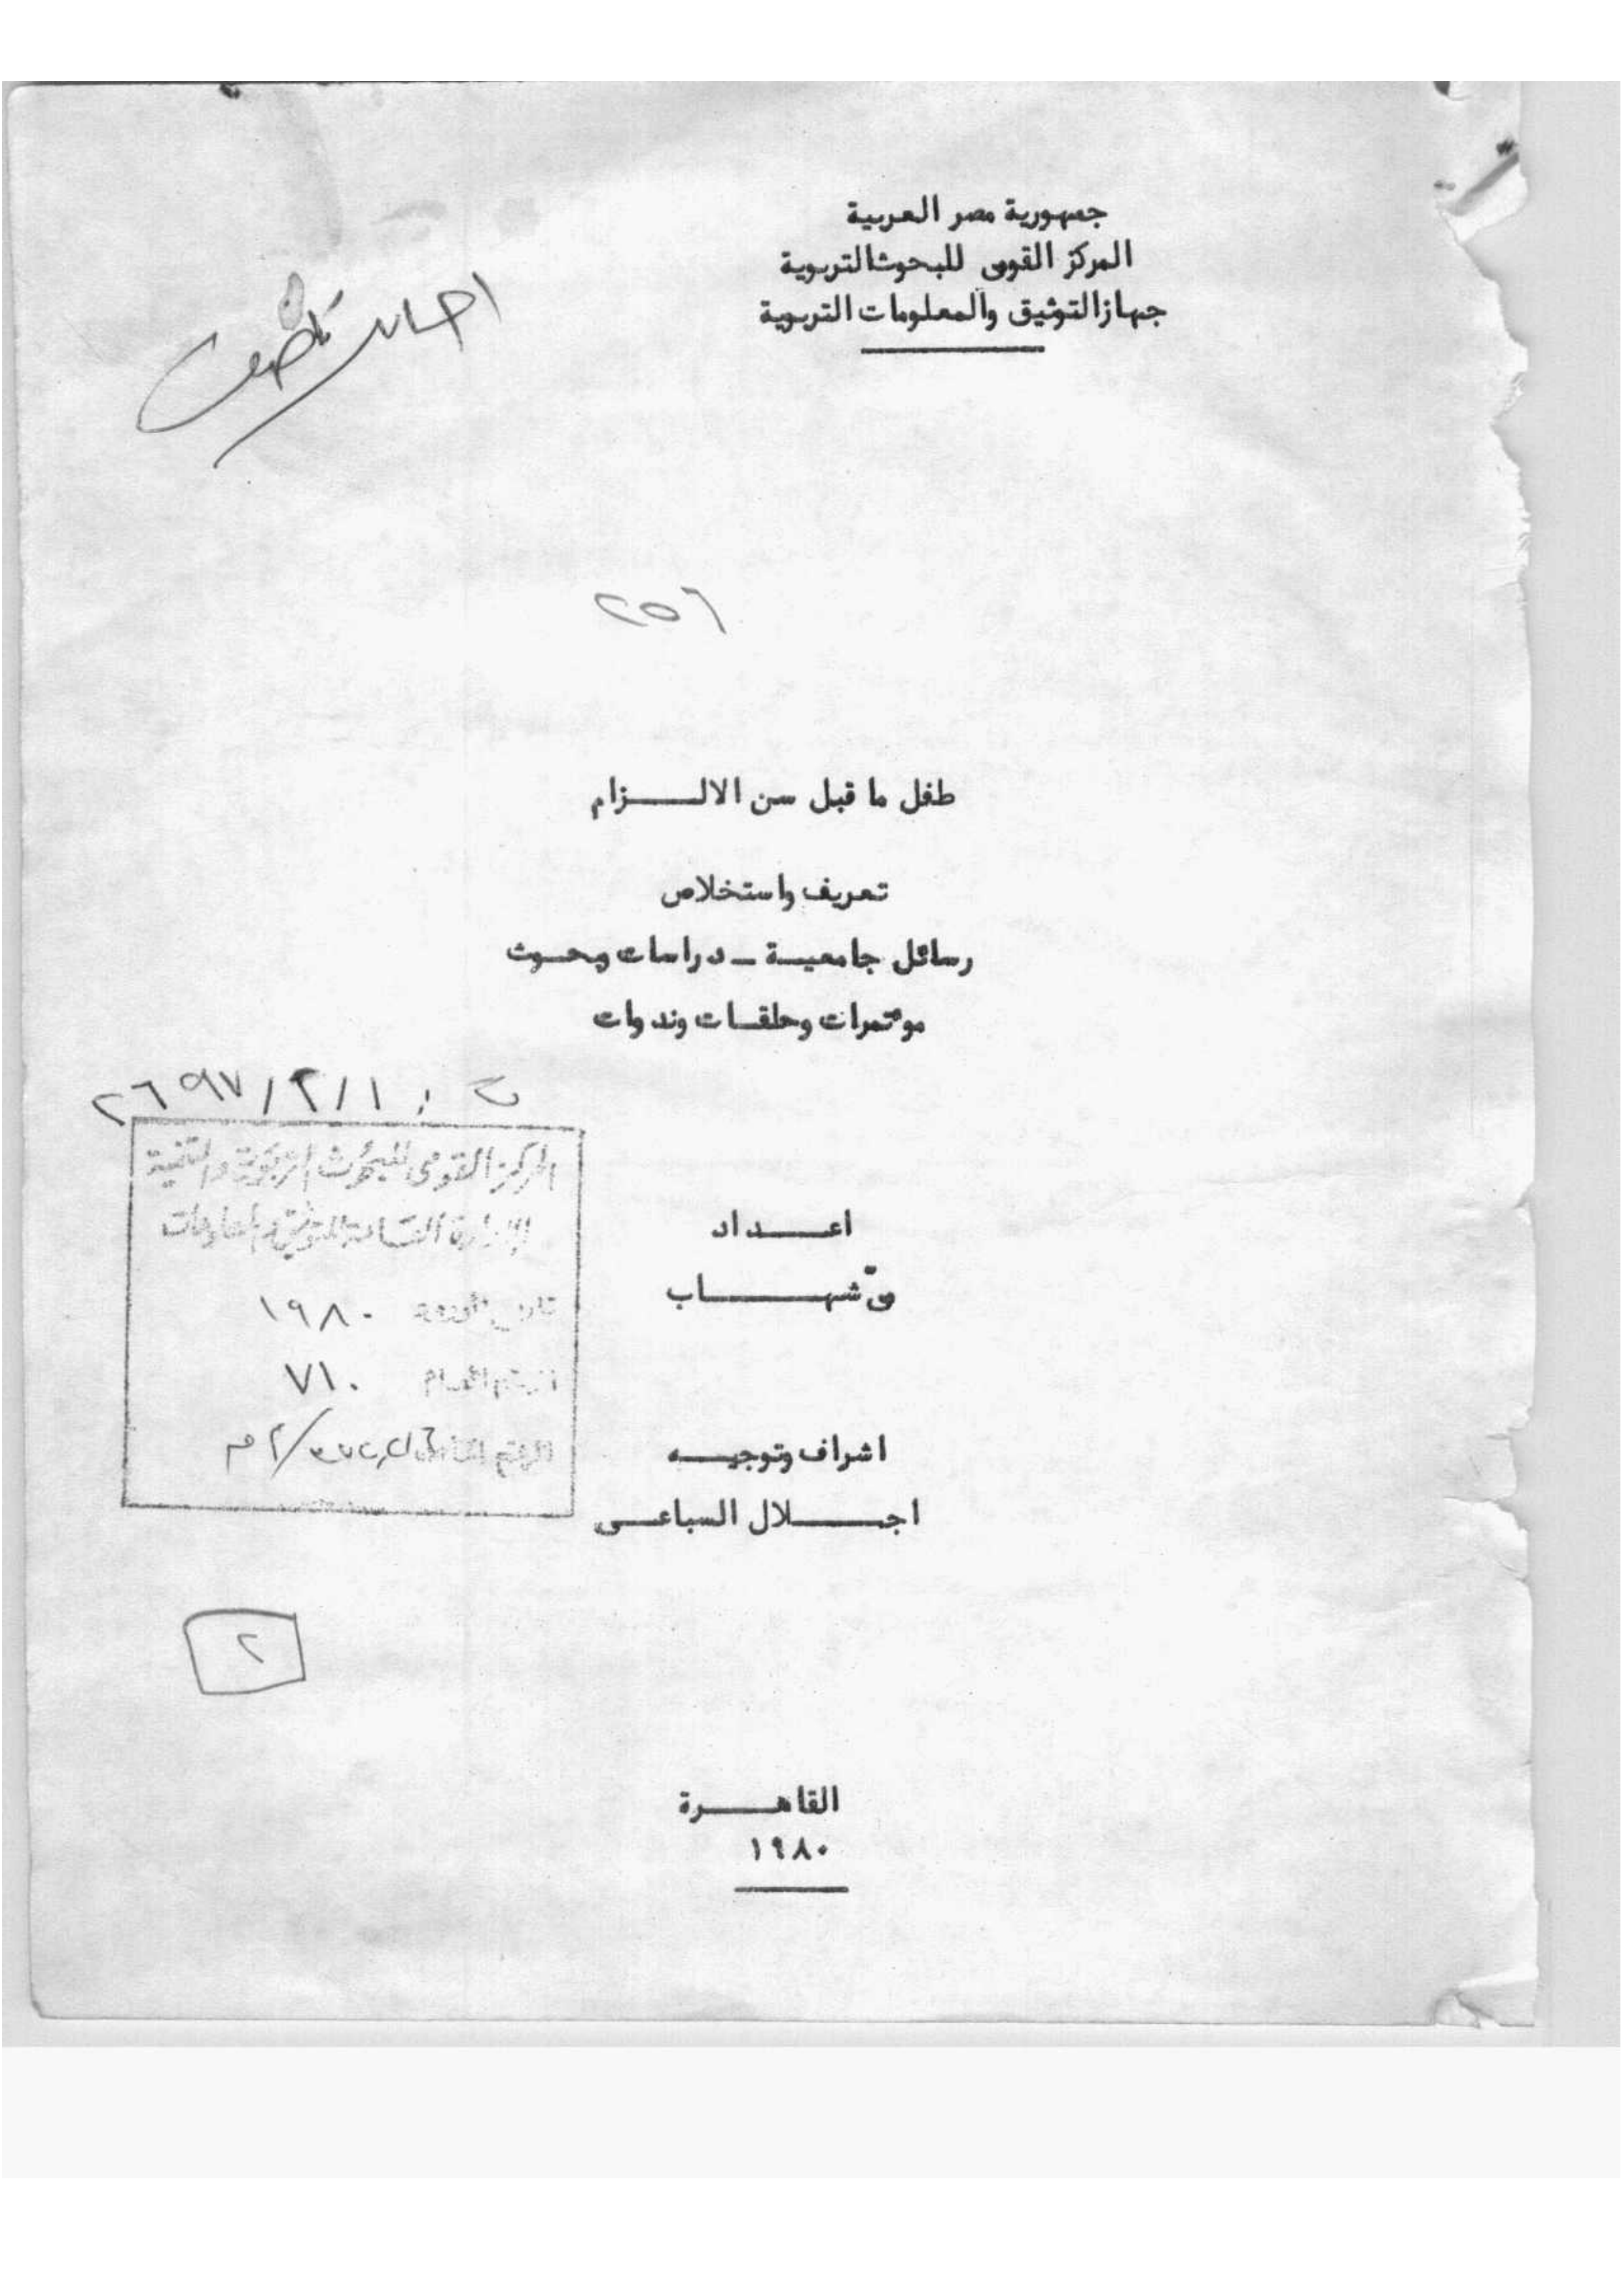 جمهورية مصر العربية
المركز القومى للبحوث التربوية
جهاز التوثيق والمعلومات التربوية
٢٥٦
طفل ما قبل سن الالـــــزام
تعريف واستخلاص
رسائل جامعيــة ــ دراسات وبحــوث
موٴتمرات وحلقــات وندوات
المركز القومى للبحوث التربوية والتنمية
الإدارة العامة للتوثيق والمعلومات
١٩٨٠
الرقم العام ٧١٠
اعــــداد
مىّ شهــــــاب
اشراف وتوجيــه
اجــــــلال السباعــى
٢
القاهــــرة
١٩٨٠